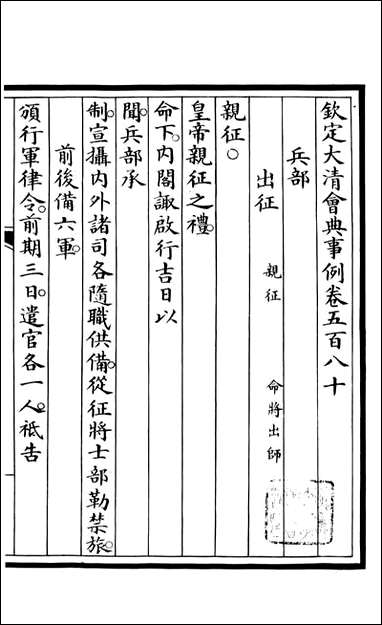 欽定大清會典事例卷五百八十
兵部
出征 親征 命將出師
親征○
皇帝親征之禮○
命下○內閣諏啟行吉日以
聞○兵部承
制○宣攝內外諸司各隨職供備○從征將士部勒禁旅○
前後備六軍○
頒行軍律令○前期三日○遣官各一人○祗告